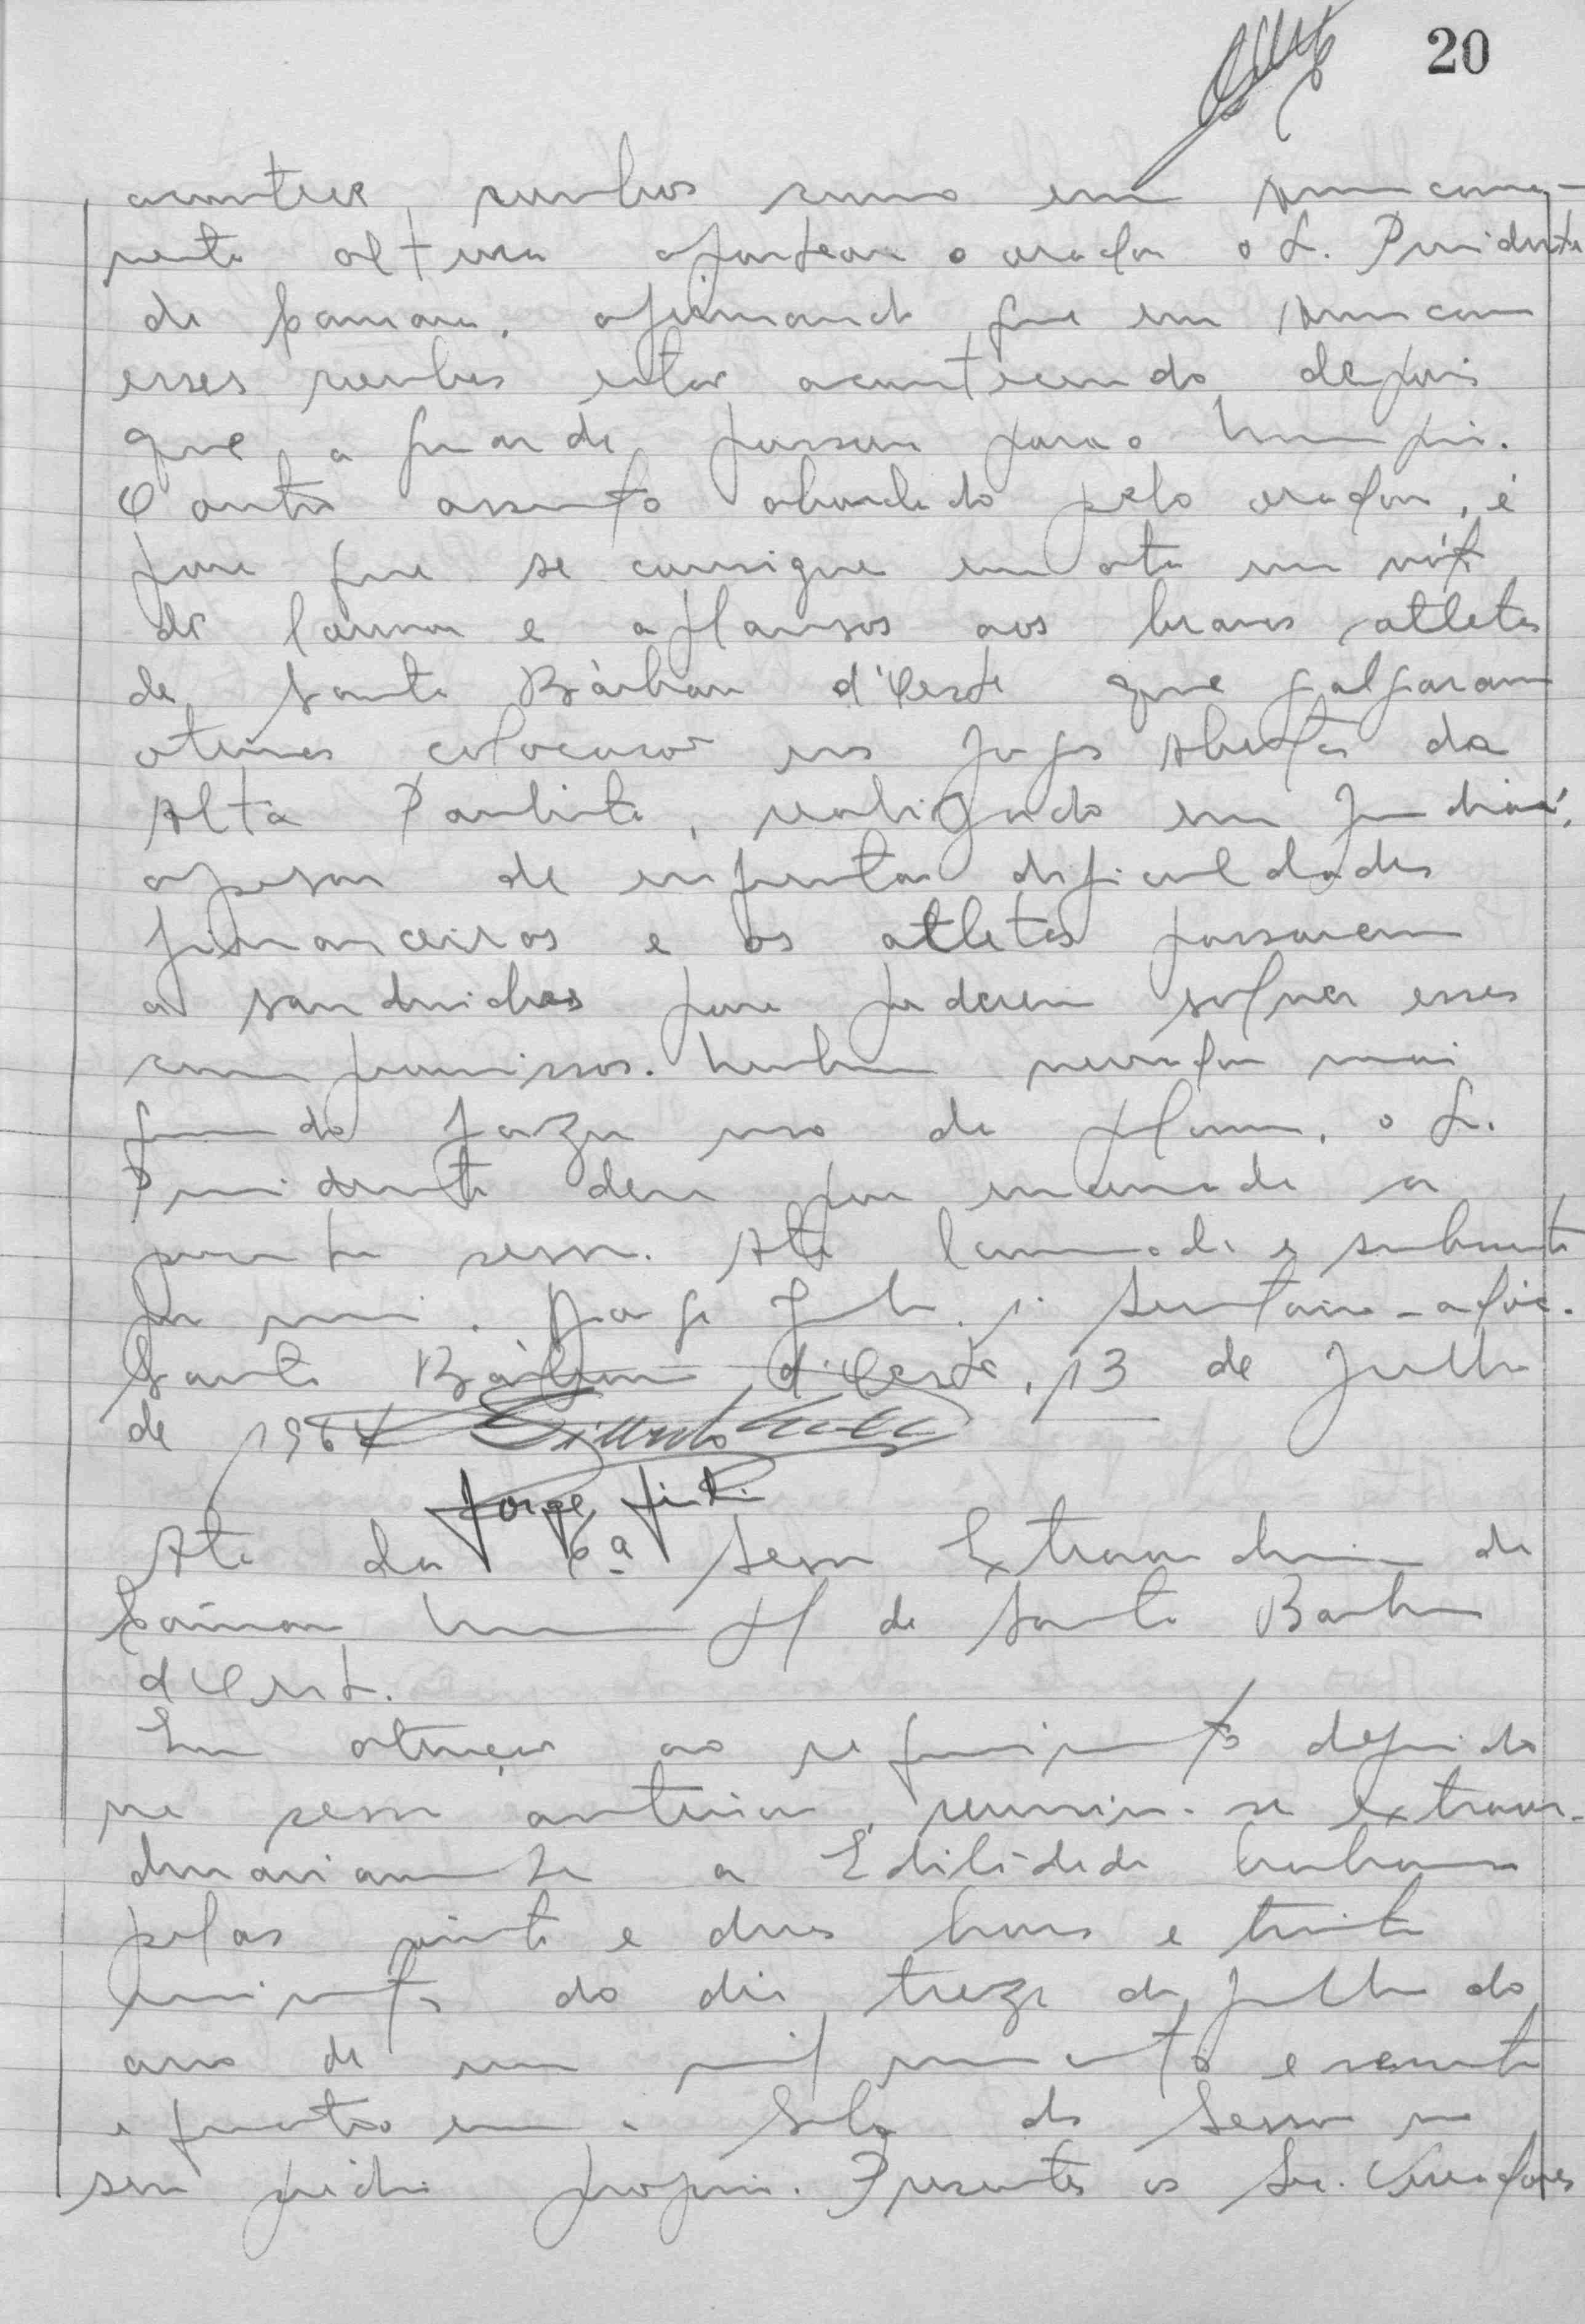 20
acontecer, roubos como em Americana, -
nesta altura aparteou o orador o S. Presidente
da Camara. afirmando que em Americana
esses roubos estão acontecendo depois
que a guarda passou para o Municipio.
O outro assunto abordado pelo orador, é
para que se consigne em ata um voto
de louvor e aplausos aos bravos atletas
de Santa Bárbara d'Oeste que galgaram
otimas colocacões nos Jogos Abertos da
Alta Paulista, realizado em Jundiaí,
apesar de enfrentar dificuldades
financeiras e os atletas passarem
a sanduiches para poderem solver esses
compromissos. Nenhum vereador mais
querendo fazer uso da palavra, o S.
Presidente deu por encerrada a
presente sessão. Ata lavrada e subscrita
por mim. Jorge 1º Secretario
Santa Bárbara d'Oeste, 13 de Julho
de 1964
Jorge
Ata da 6ª Sessão Extraordinaria da
Câmara Municipal de Santa Barbara
d'Oeste.
Em atenção ao requerimento deferido
na sessão anterior, reuniu-se extraor-
dinariamente a Edilidade barbarense
pelas vinte e duas horas e trinta
minutos do dia treze de julho do
ano de um mil novecentos e sessenta
e quatro em a Sala de Sessões no
seu prédio proprio. Presentes os Srs. Vereadores